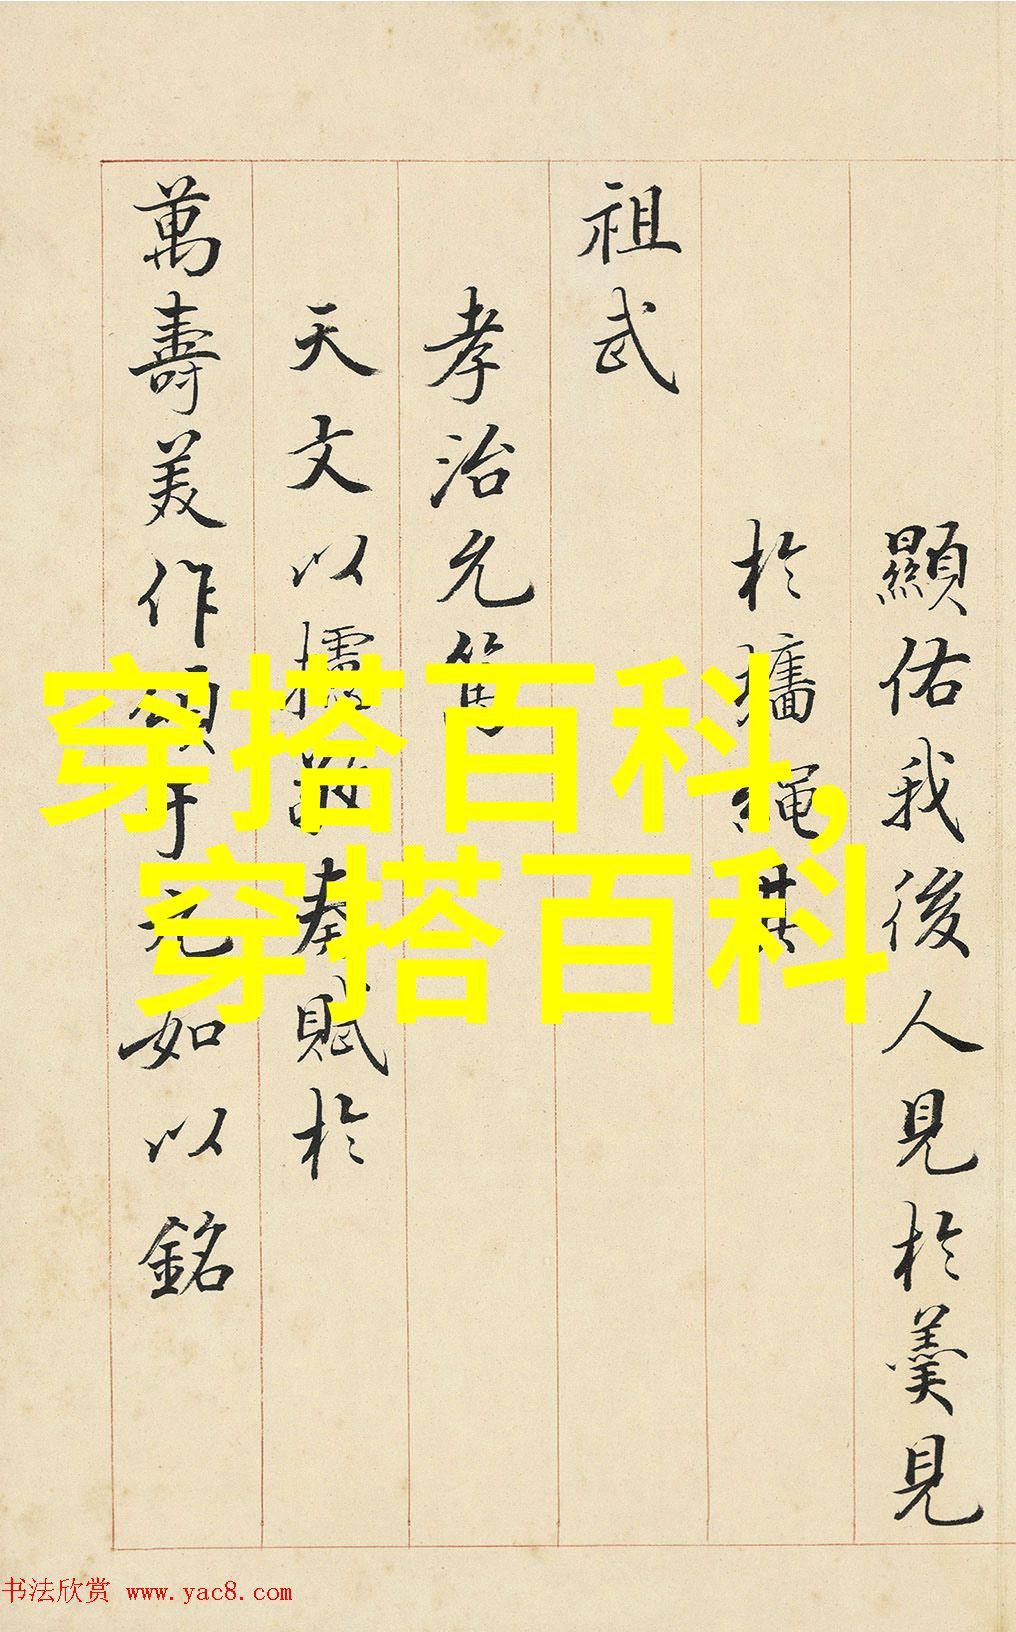 顯佑我後人見於羹見
於墻繩其
祖武
孝治允
天文以摛奏賦於
萬壽美作頌于元如以銘
穿搭百科,
穿搭百科
书法欣赏 www.yac8.com